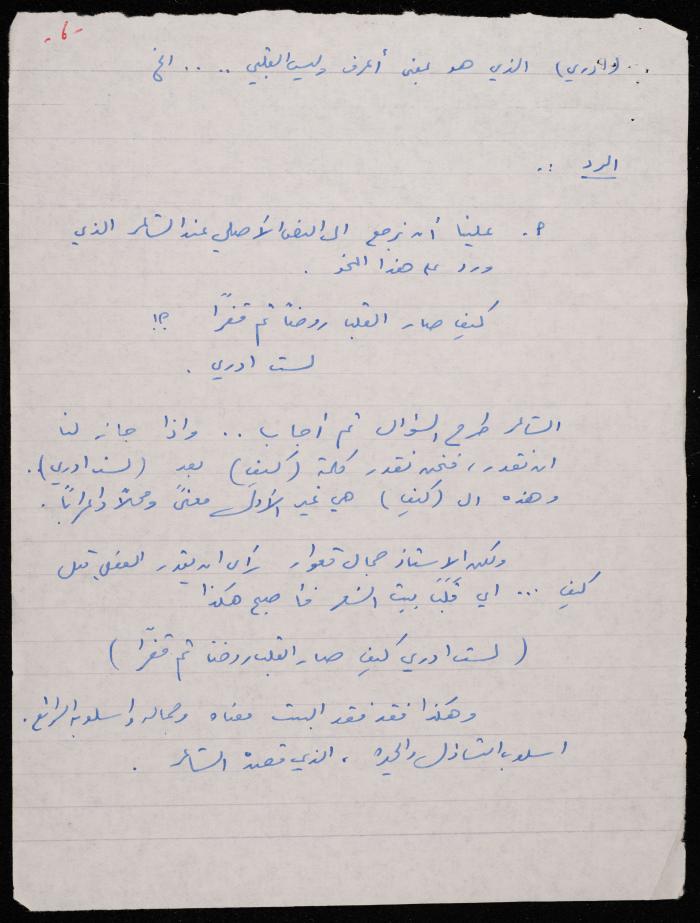 -٦-
(وادري) الذي هو بمعنى أعرف وليس القلبي .... الخ
الرد :.
٢. علينا أن نرجع الى النص الأصلي عند الشاعر الذي
ورد على هذا النحو .
كيف صار القلب روضاً ثم قفرًا ؟!
لست ادري .
الشاعر طرح السؤال ثم أجاب .. واذا جاز لنا
ان نقدر، فنحن نقدر كلمة (كيف) بعد (لست ادري).
وهذه ال (كيف) هي غير الأولى معنىً ومحلاً واعراباً .
ولكن الاستاذ جمال قعوار رأى ان يقدر الفعل قبل
كيف ... اي قَلَبَ بيت الشعر فأصبح هكذا
( لست ادري كيف صار القلب روضاً ثم قفرًا )
وهكذا فقد فقد البيت معناه وجماله واسلوبه الرائع .
اسلوب التساؤل والحيرة ، الذي قصده الشاعر .